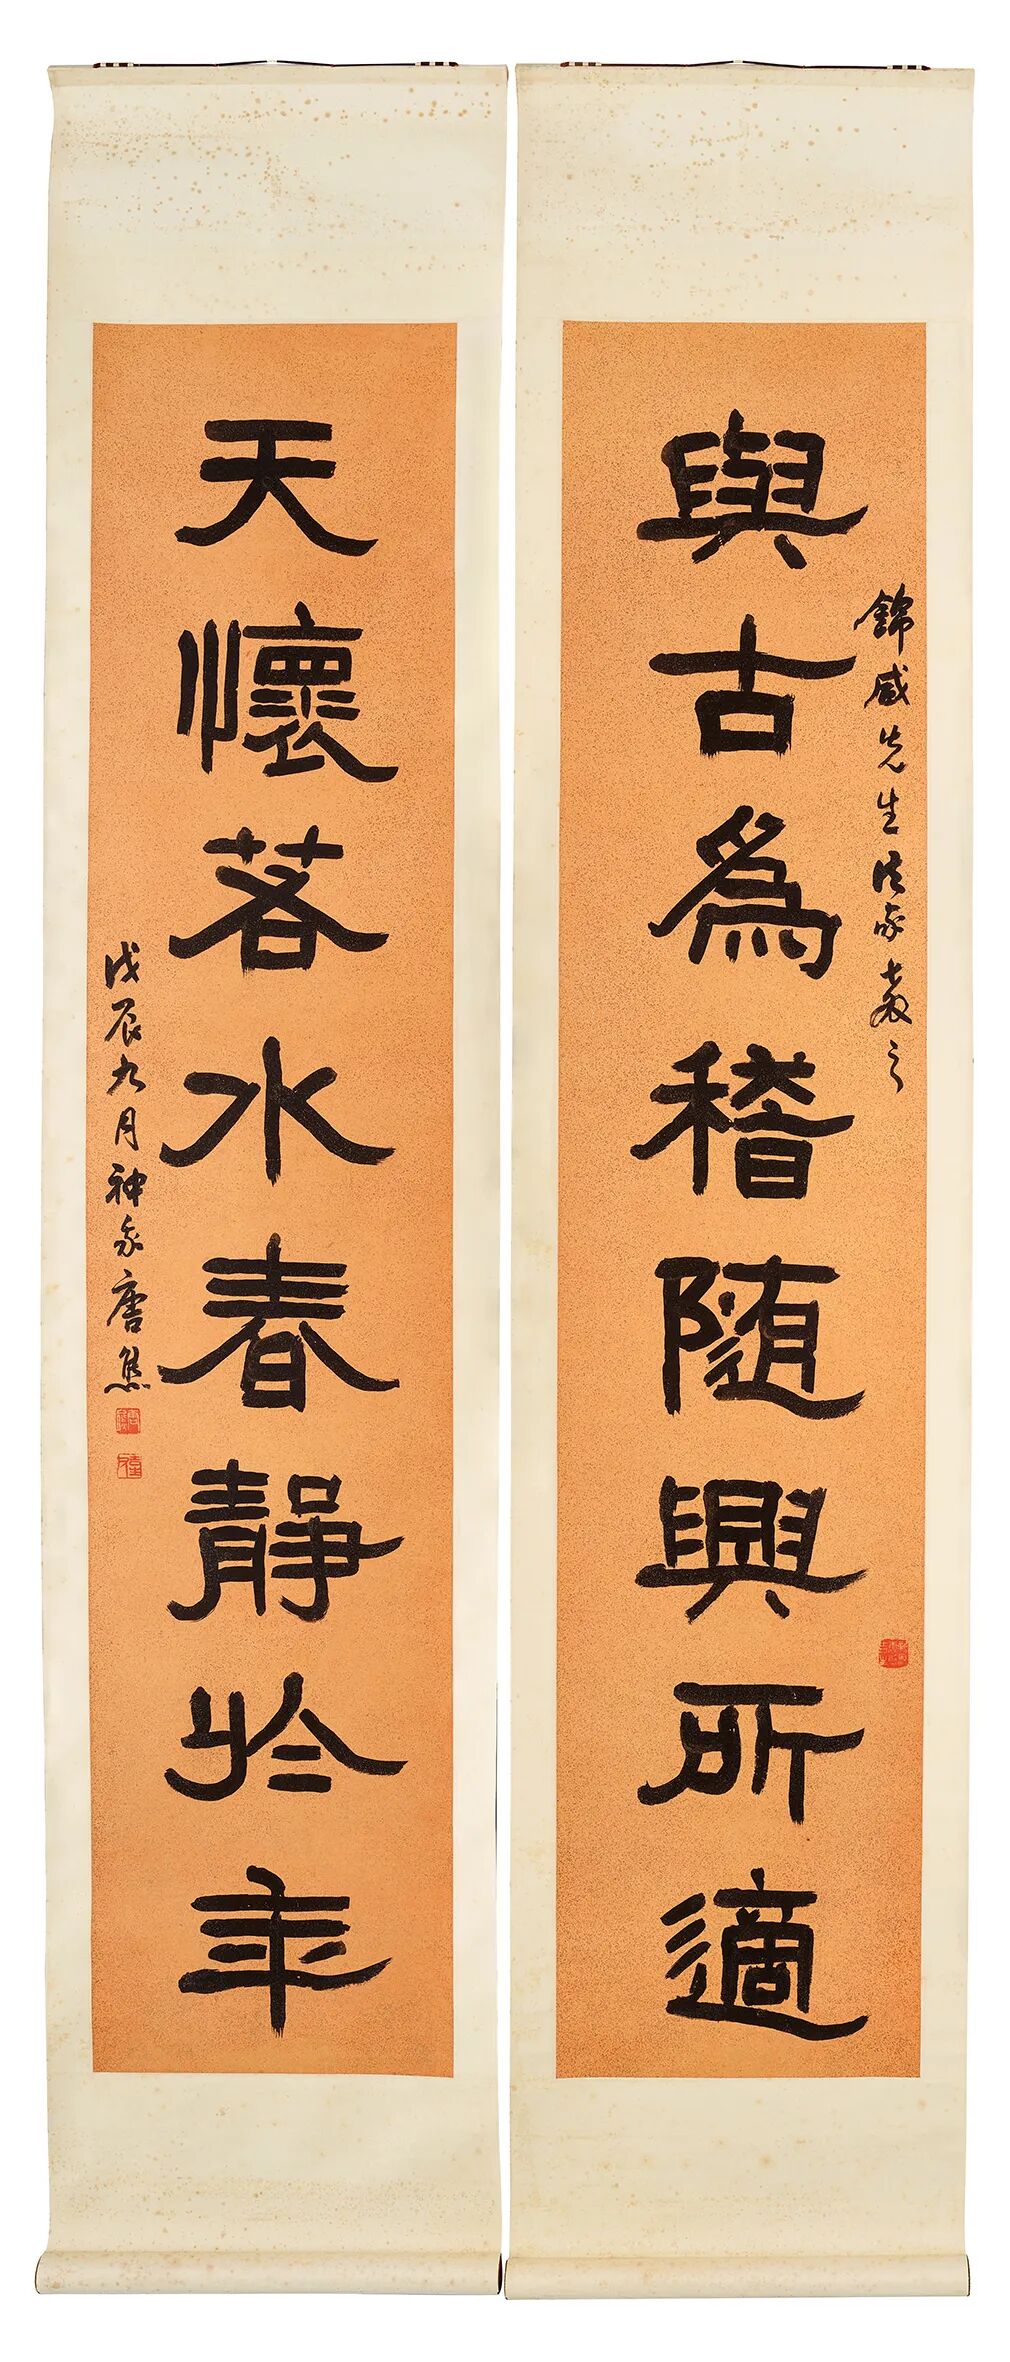 錦威先生法家教之
與古為稽随興所適
天懷若水春靜於年
戊辰九月神州唐雋